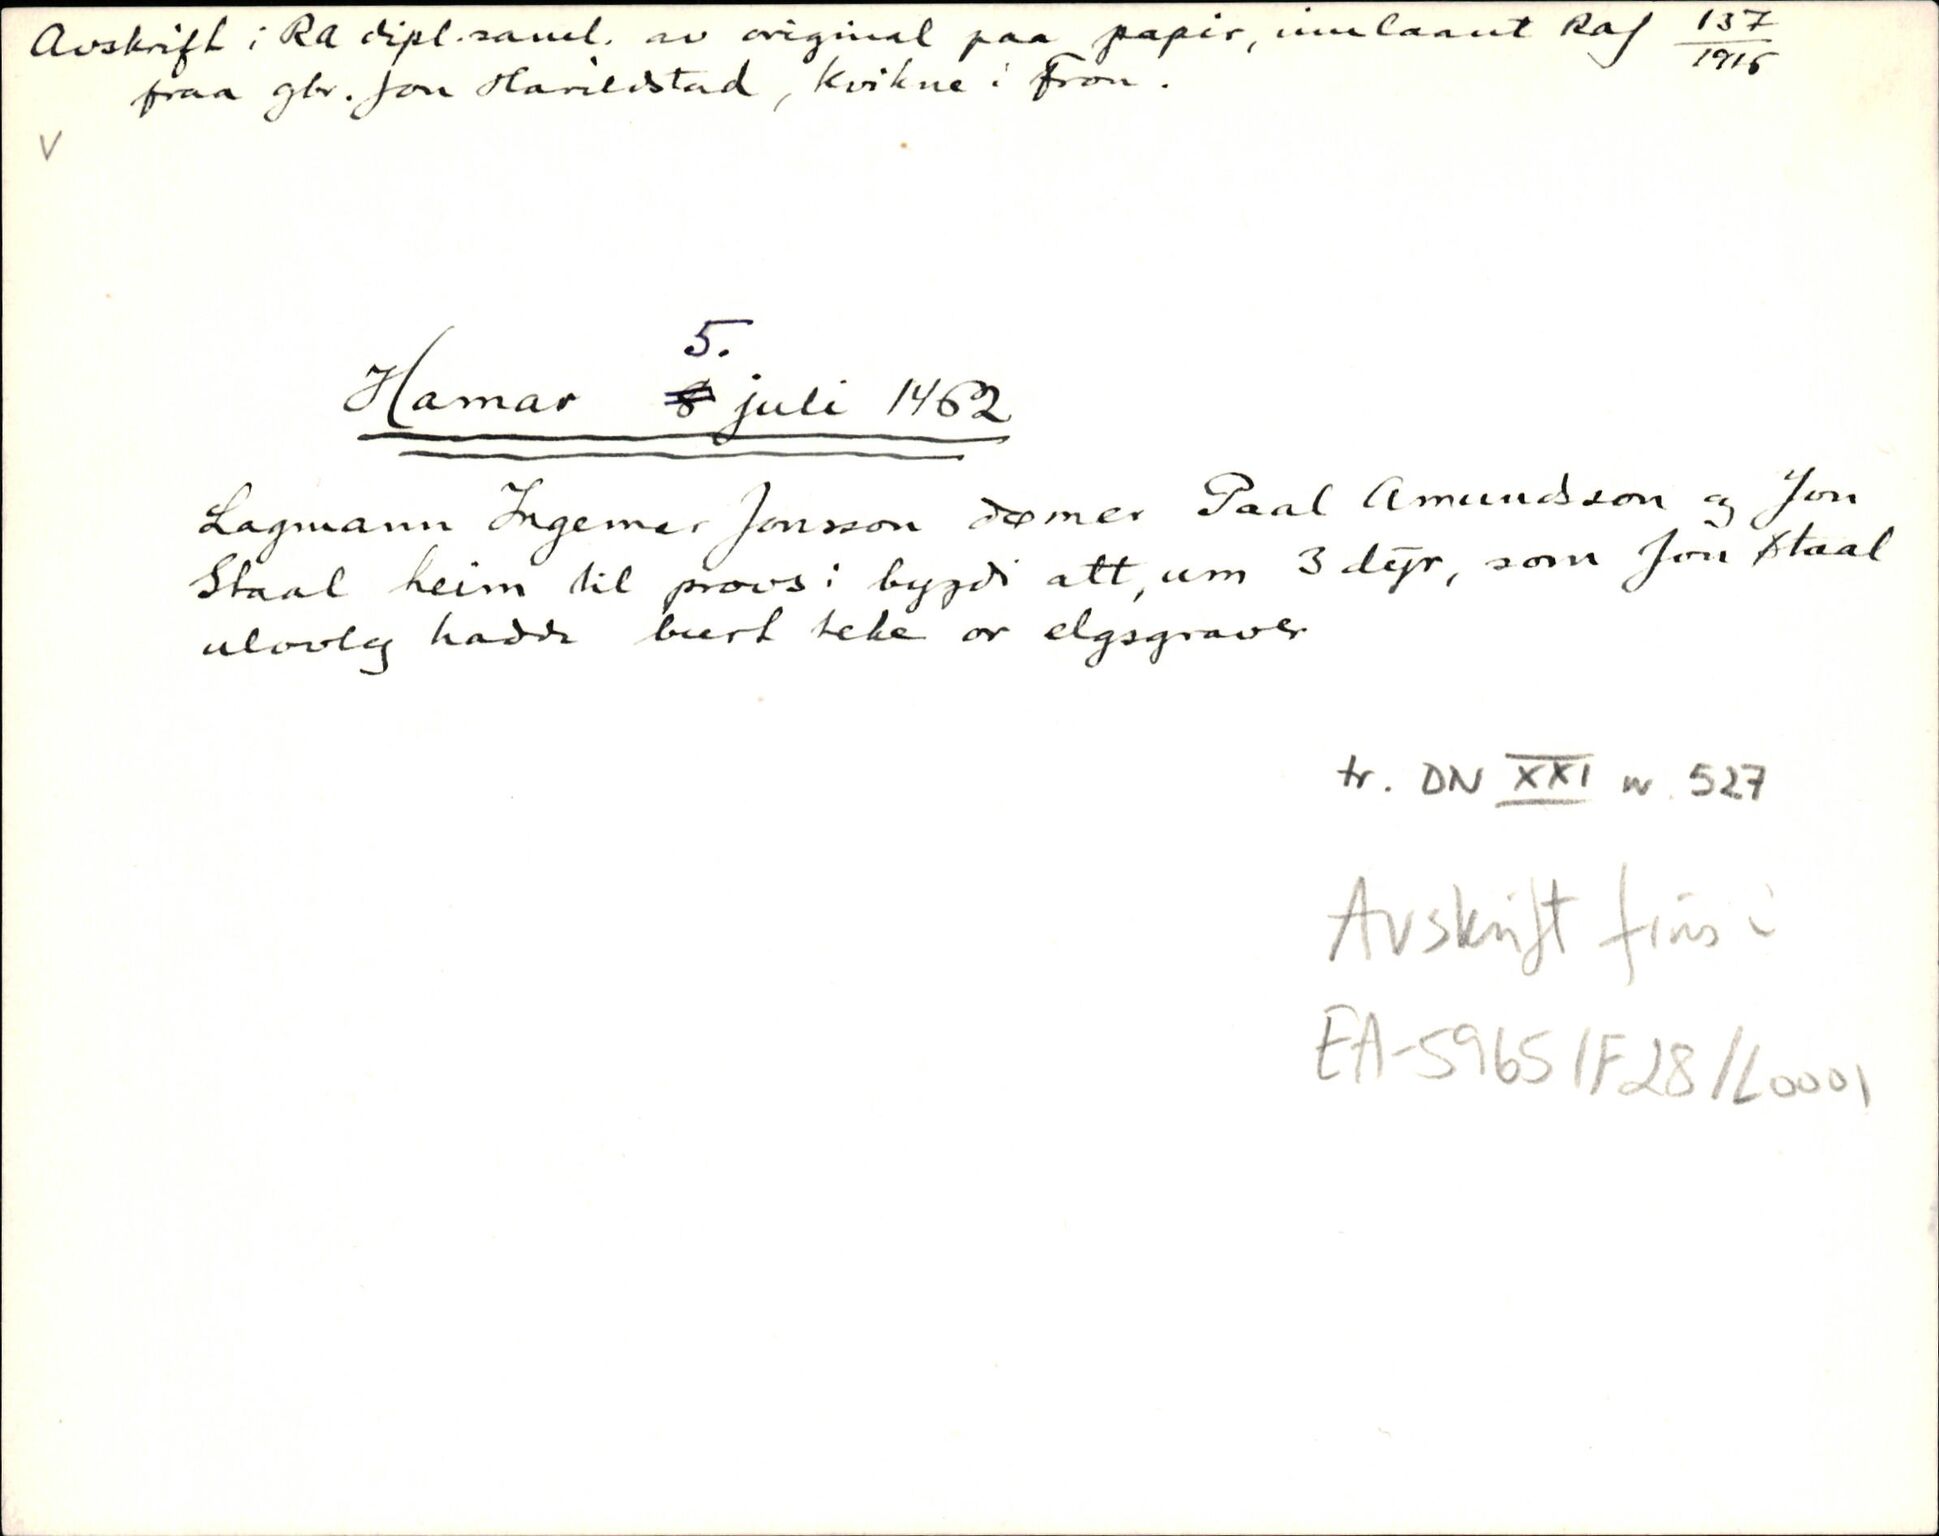 Avskrift i RA dipl.saml. av original paa papir, innlaant Raj 137/1916
fraa gbr. Jon Harildstad, Kvikne i Fron.
V
5.
Hamar 8 juli 1462
Lagmann Ingemar Jonsson dømer Paal Amundsson og Jon
Staal heim til provs i bygdi att, um 3 dyr, som Jon Staal
ulovleg hadde burt teke or elgsgraver
tr. DN XXI nr. 527
Avskrift fins i
EA-5965/F28/L0001